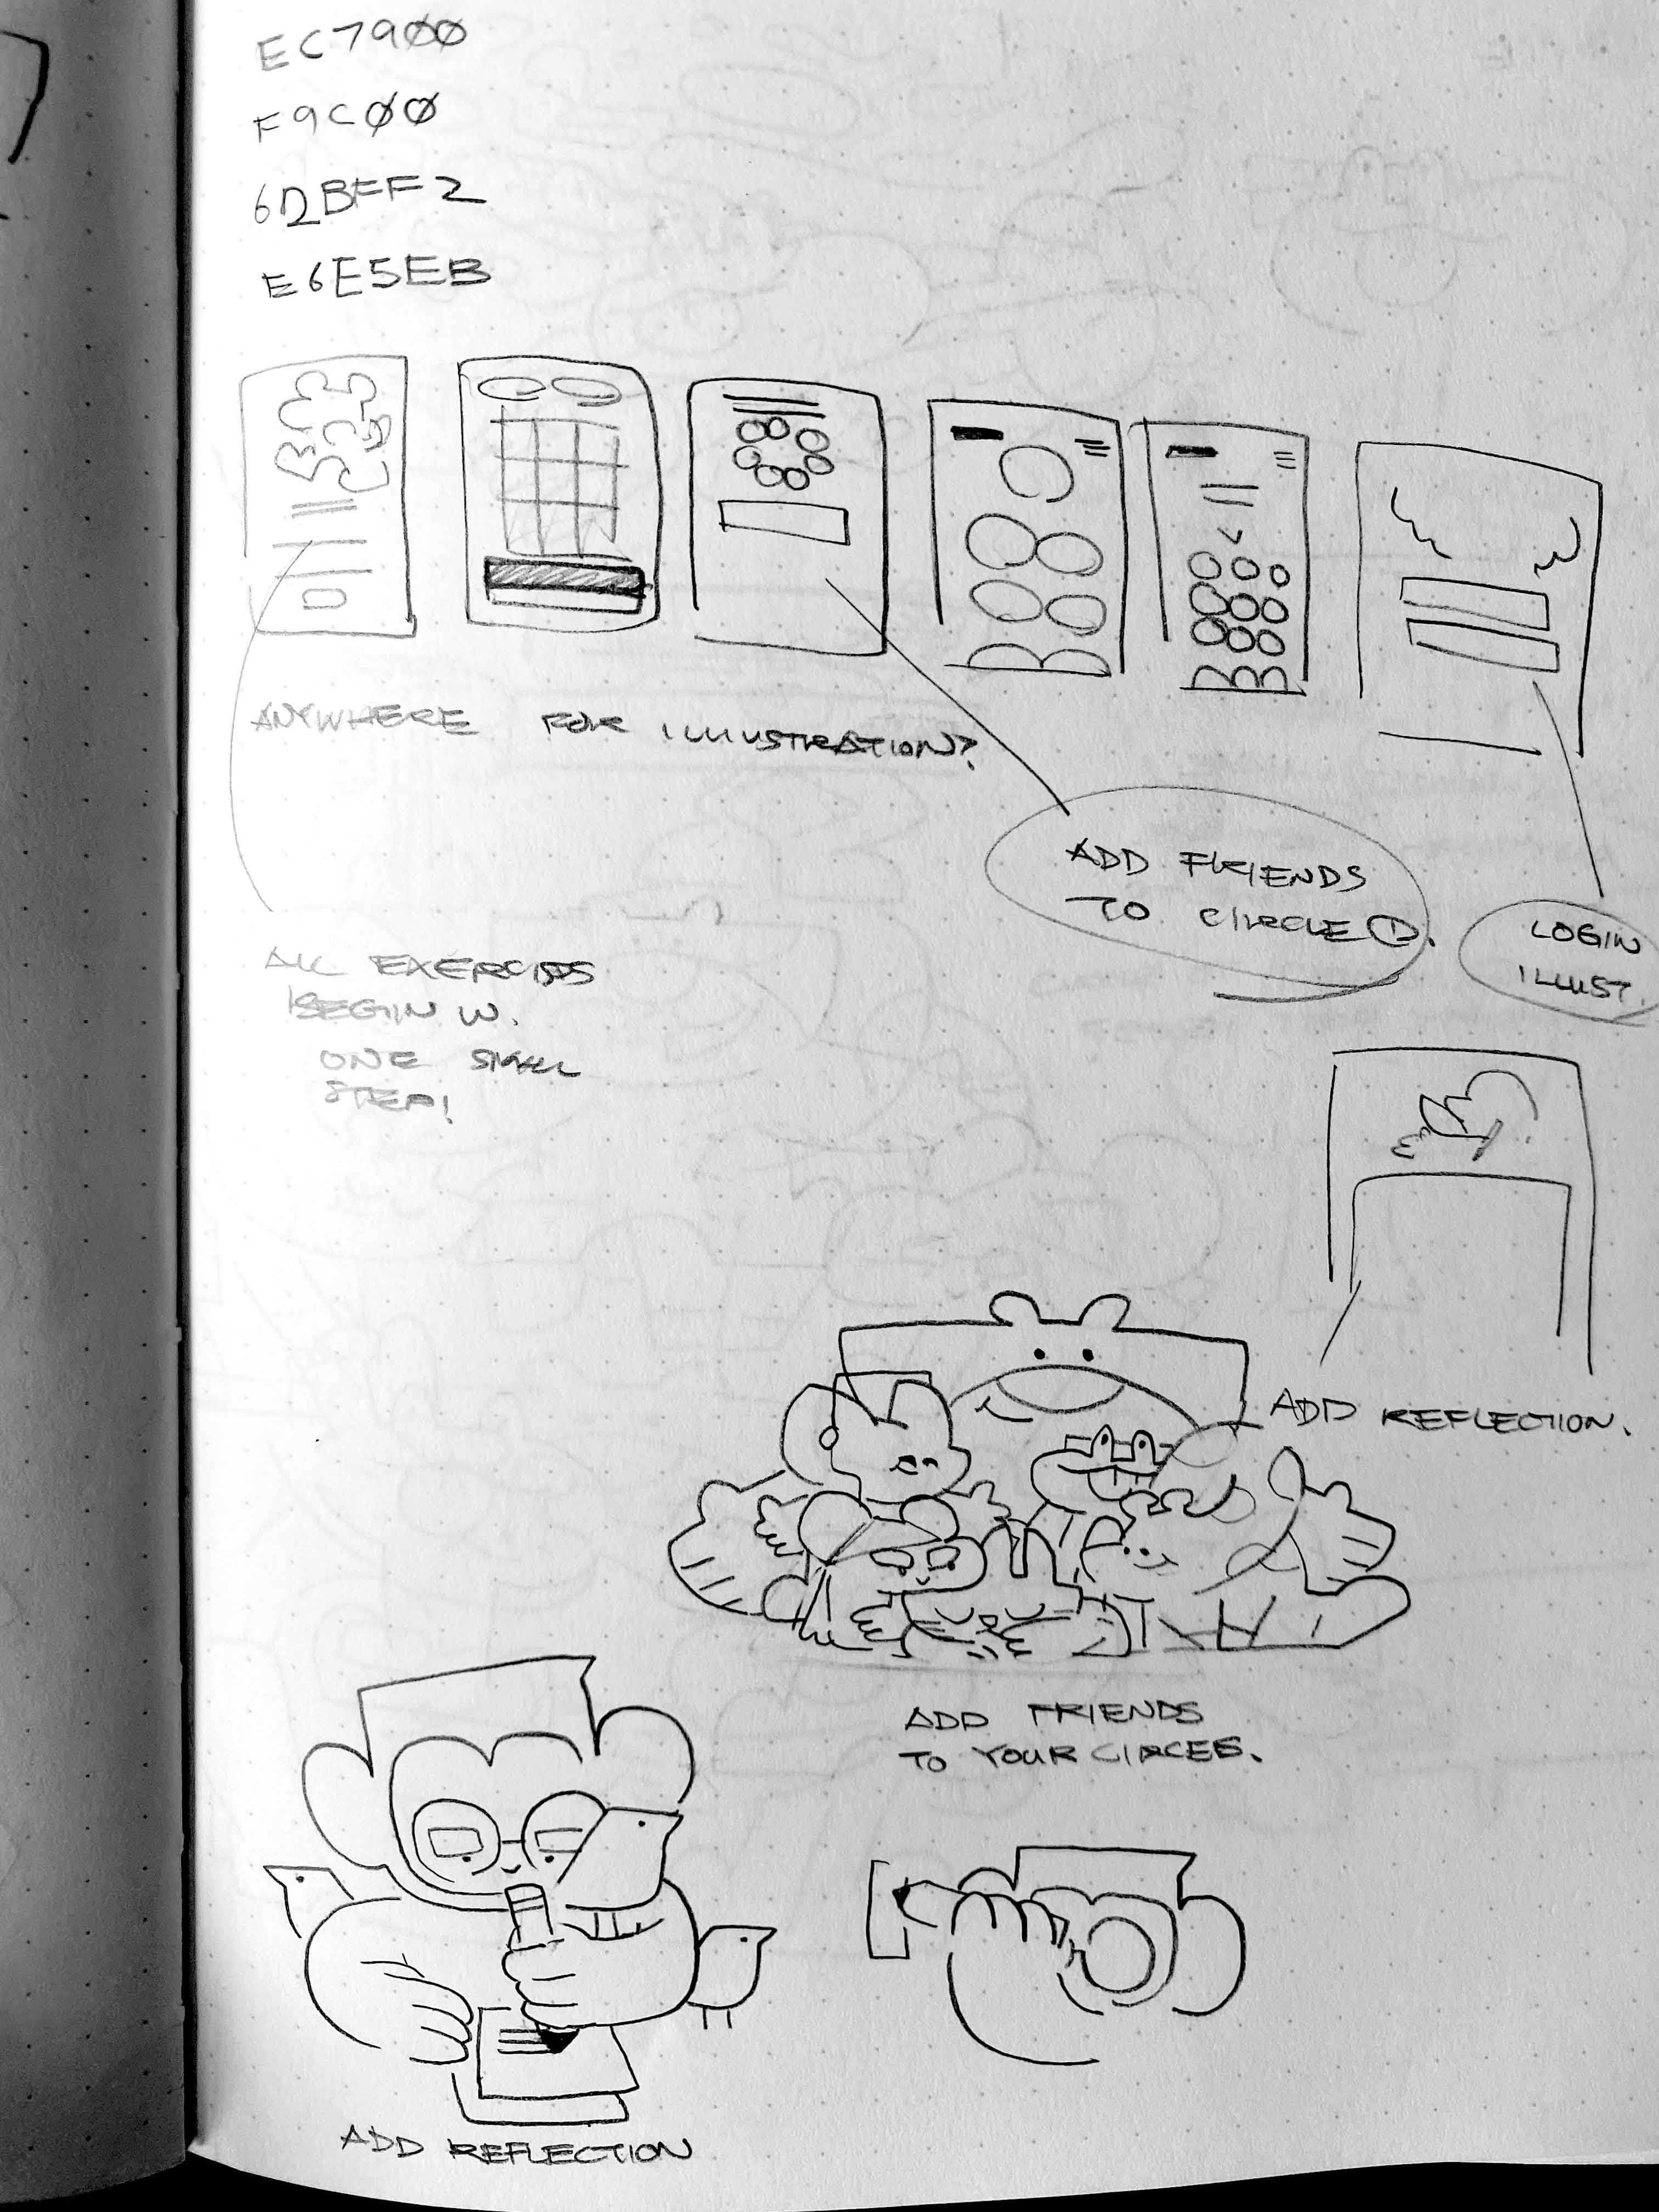 EC7900
F9C00
62BFF2
E6E5EB
ANYWHERE FOR ILLUSTRATION?
ADD FRIENDS
TO CIRCLE ①.
LOGIN
ILLUST.
ALL EXERCISES
BEGIN W.
ONE SMALL
STEP!
ADD REFLECTION.
ADD FRIENDS
TO YOUR CIRCLES.
ADD REFLECTION